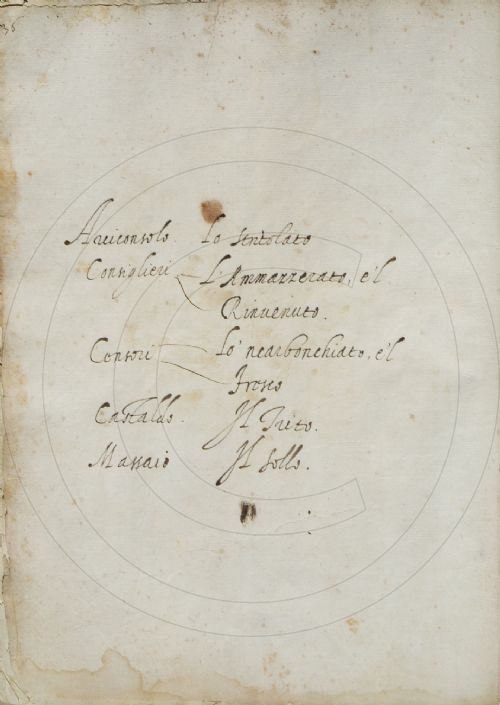 Arciconsolo. Lo Stritolato
Consiglieri L'Ammazzerato, e'l
Rinvenuto.
Censori Lo'ncarbonchiato, e'l
Fresco
Castaldo. Il Trito.
Massaio Il Sollo.